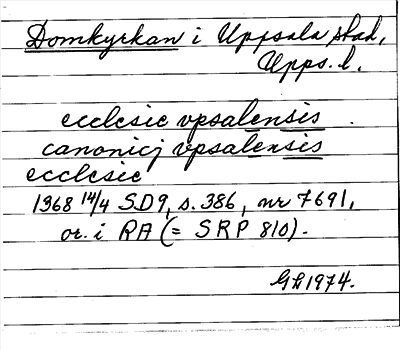 Domkyrkan i Uppsala stad,
Upps. l.
ecclesie vpsalensis .
canonicj vpsalensis
ecclesie
1368 14/4 SD9, s. 386, nr 7691,
or. i RA (= SRP 810).
GL 1974.